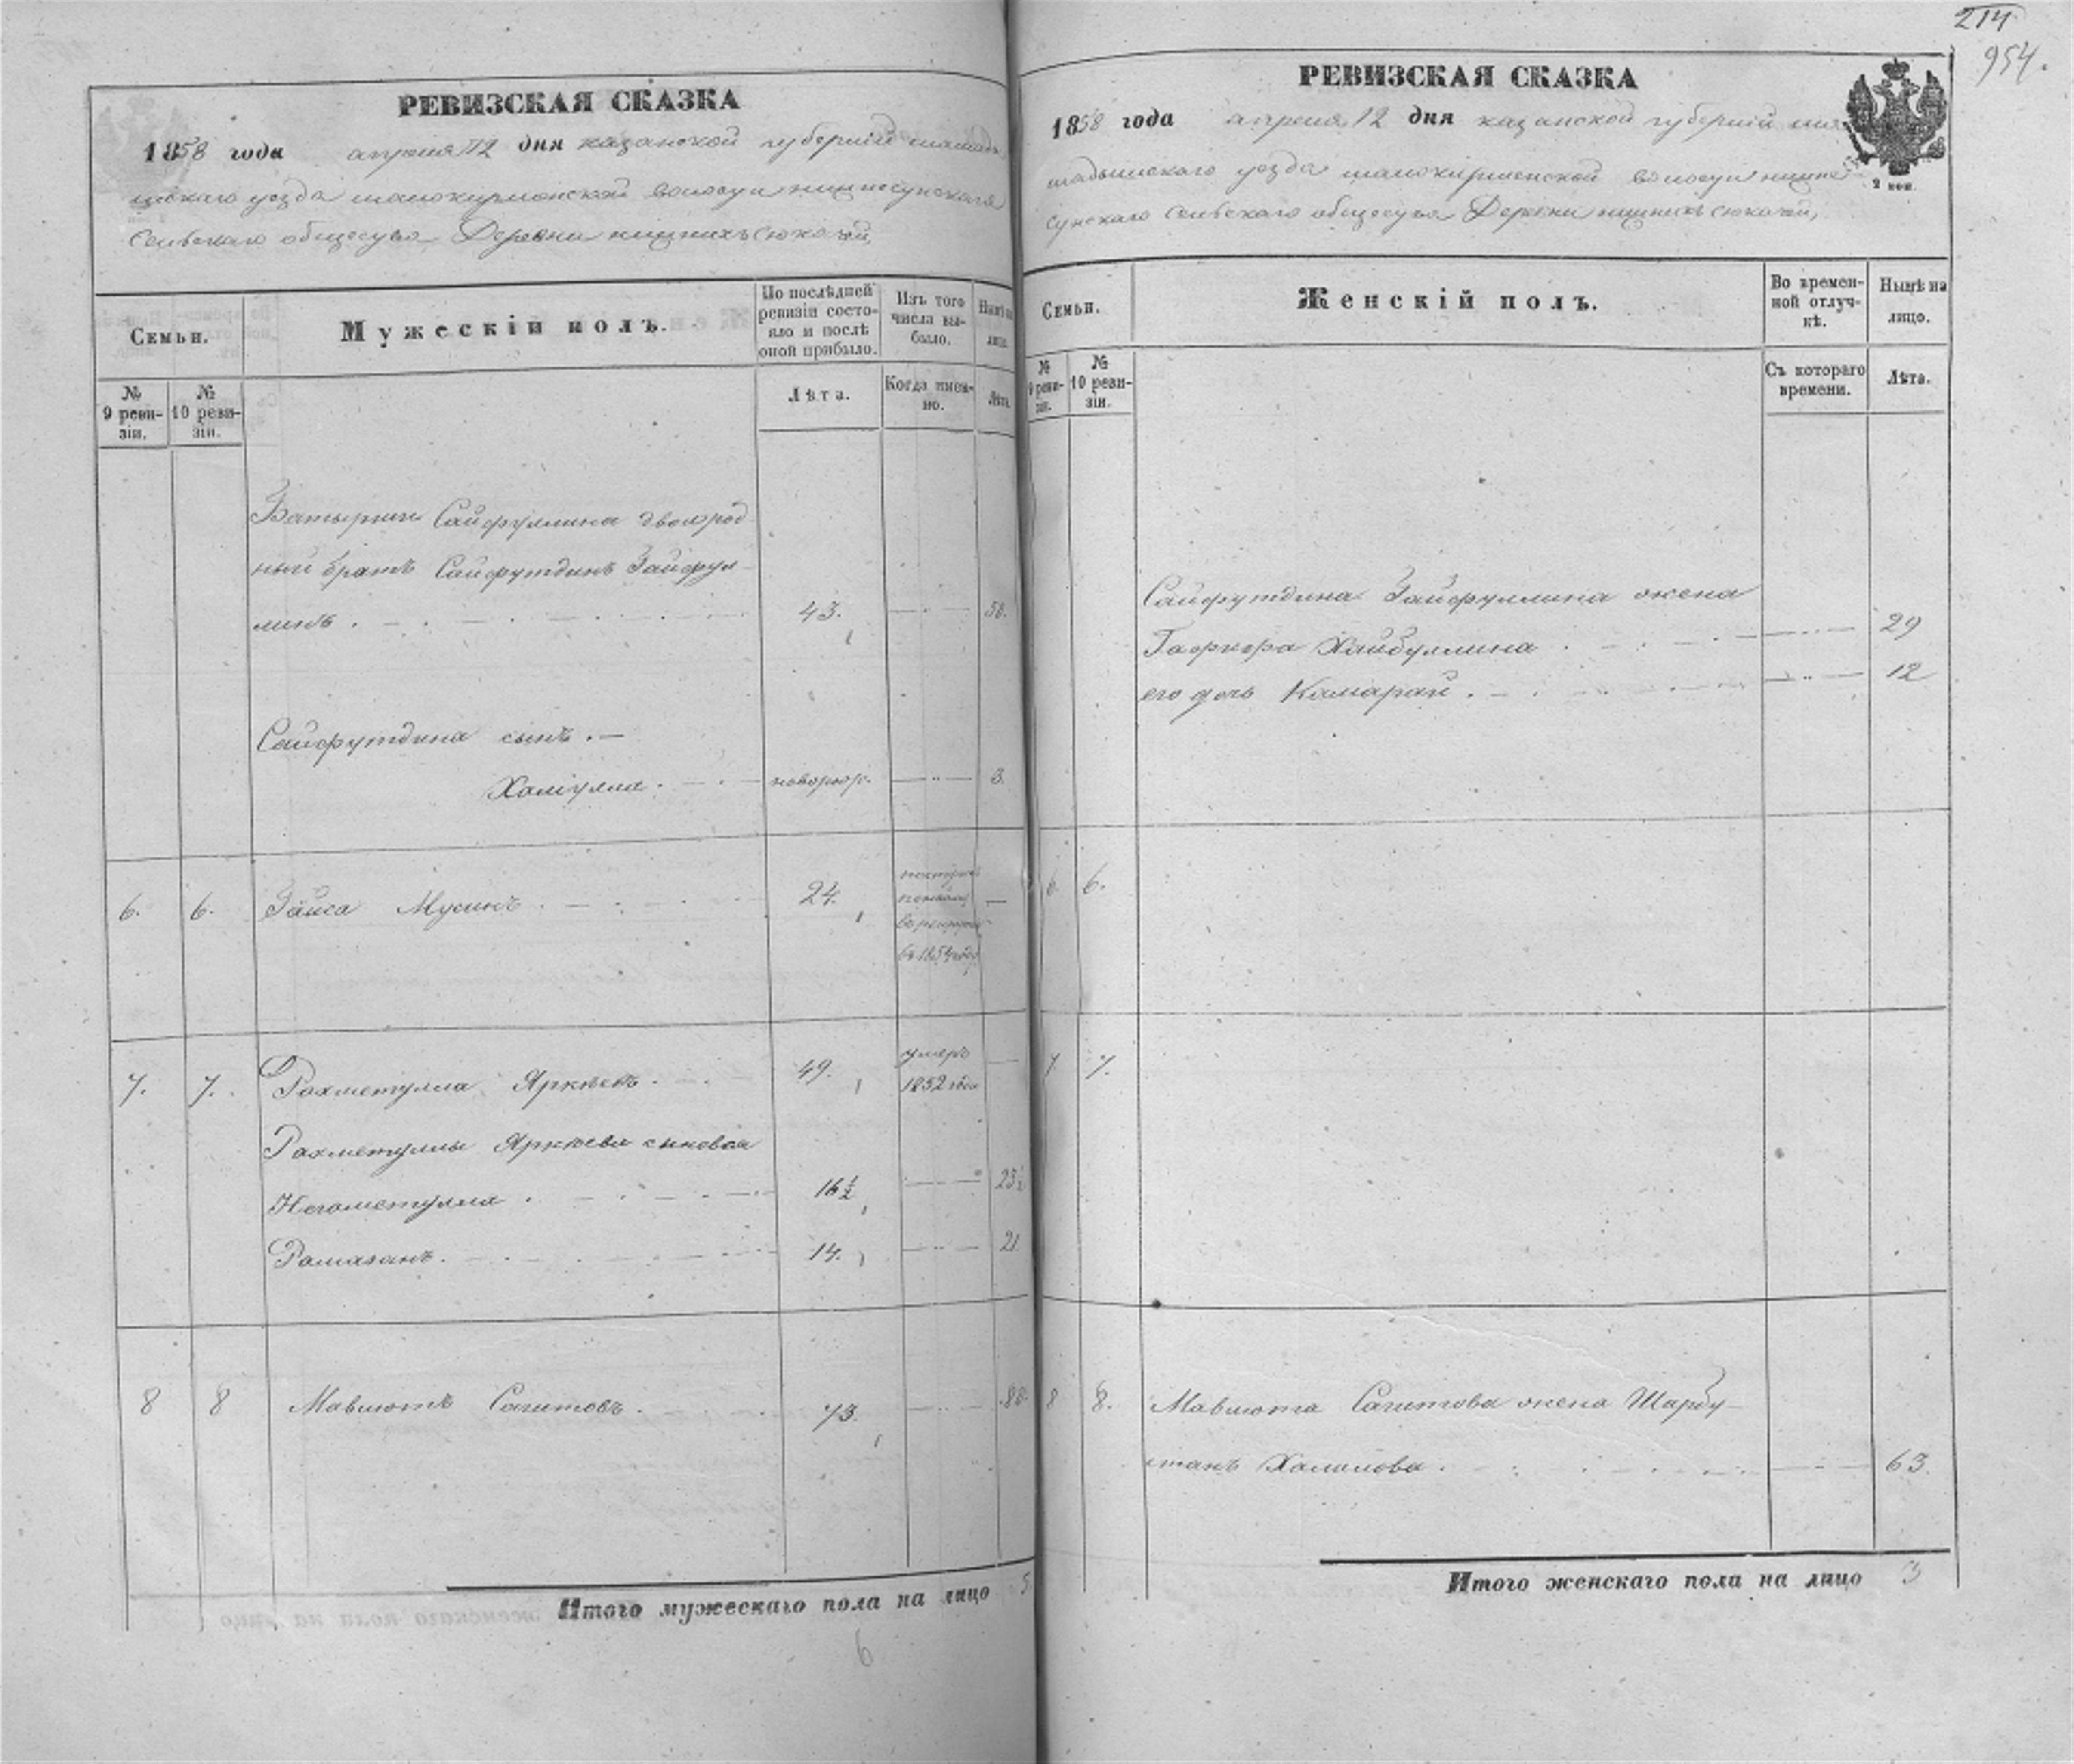 214
954.
РЕВИЗСКАЯ СКАЗКА
1858 года апреля 12 дня казанской губерніи мамады
шскаго уезда
сельскаго общества Деревни нижнихъ Сюкачей,
Семьи.
Мужескій полъ.
По послѣдней ревизіи состояло и послѣ оной прибыло.
Изъ того числа выбыло.
Нынѣ на лицо.
№ 9 ревизіи.
№ 10 ревизіи.
Лѣта.
Когда именно.
Лѣта.
Батырши Сайфуллина двоюрод
ный братъ Сайфутдинъ Зайфул
линъ . 43. 50.
Сайфутдина сынъ .
Халіулла . новорож. 3.
6. 6. Гайса Мусинъ . 24.
въ 1854 годѵ
7. 7. Рахметулла Яркѣевъ . 49. умеръ
1852 года
Рахметуллы Яркѣева сыновья
Негаметулла . 16½ 23½
Рамазанъ . 14. 21
8 8 Мавлютъ Сагитовъ . 73. 88
Итого мужескаго пола на лицо 5.
6
РЕВИЗСКАЯ СКАЗКА
1858 года апреля 12 дня казанской губерніи ма
мадышскаго уезда
сельскаго общества Деревни нижнихъ Сюкачей,
2 коп.
Семьи.
Женскій полъ.
Во временной отлучкѣ.
Нынѣ на лицо.
№ 9 ревизіи.
№ 10 ревизіи.
Съ котораго времени.
Лѣта.
Сайфутдина Зайфуллина жена
Хайбуллина . 29
его дочь Камарай . 12
6. 6.
7 7.
8 8. Мавлюта Сагитова жена Шарбу
станъ Халилова . 63.
Итого женскаго пола на лицо 3